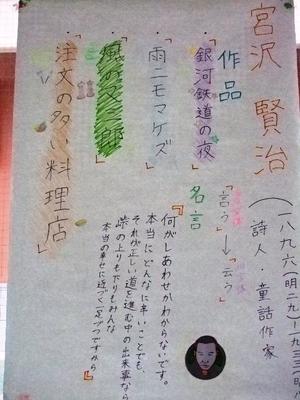 宮沢 賢治
(一八九六(明二九)一九三三(明
詩人・童話作家
作品
・『銀河鉄道の夜』
・『雨ニモマケズ』
・『風の又三郎』
・『注文の多い料理店』
「言う」→「云う」
名言
『何がしあわせかわからないです。
本当にどんなに辛いことでも、
それが正しい道を進む中の出来事なら
峠の上りも下りもみんな
本当の幸せに近づく一足づつですから』